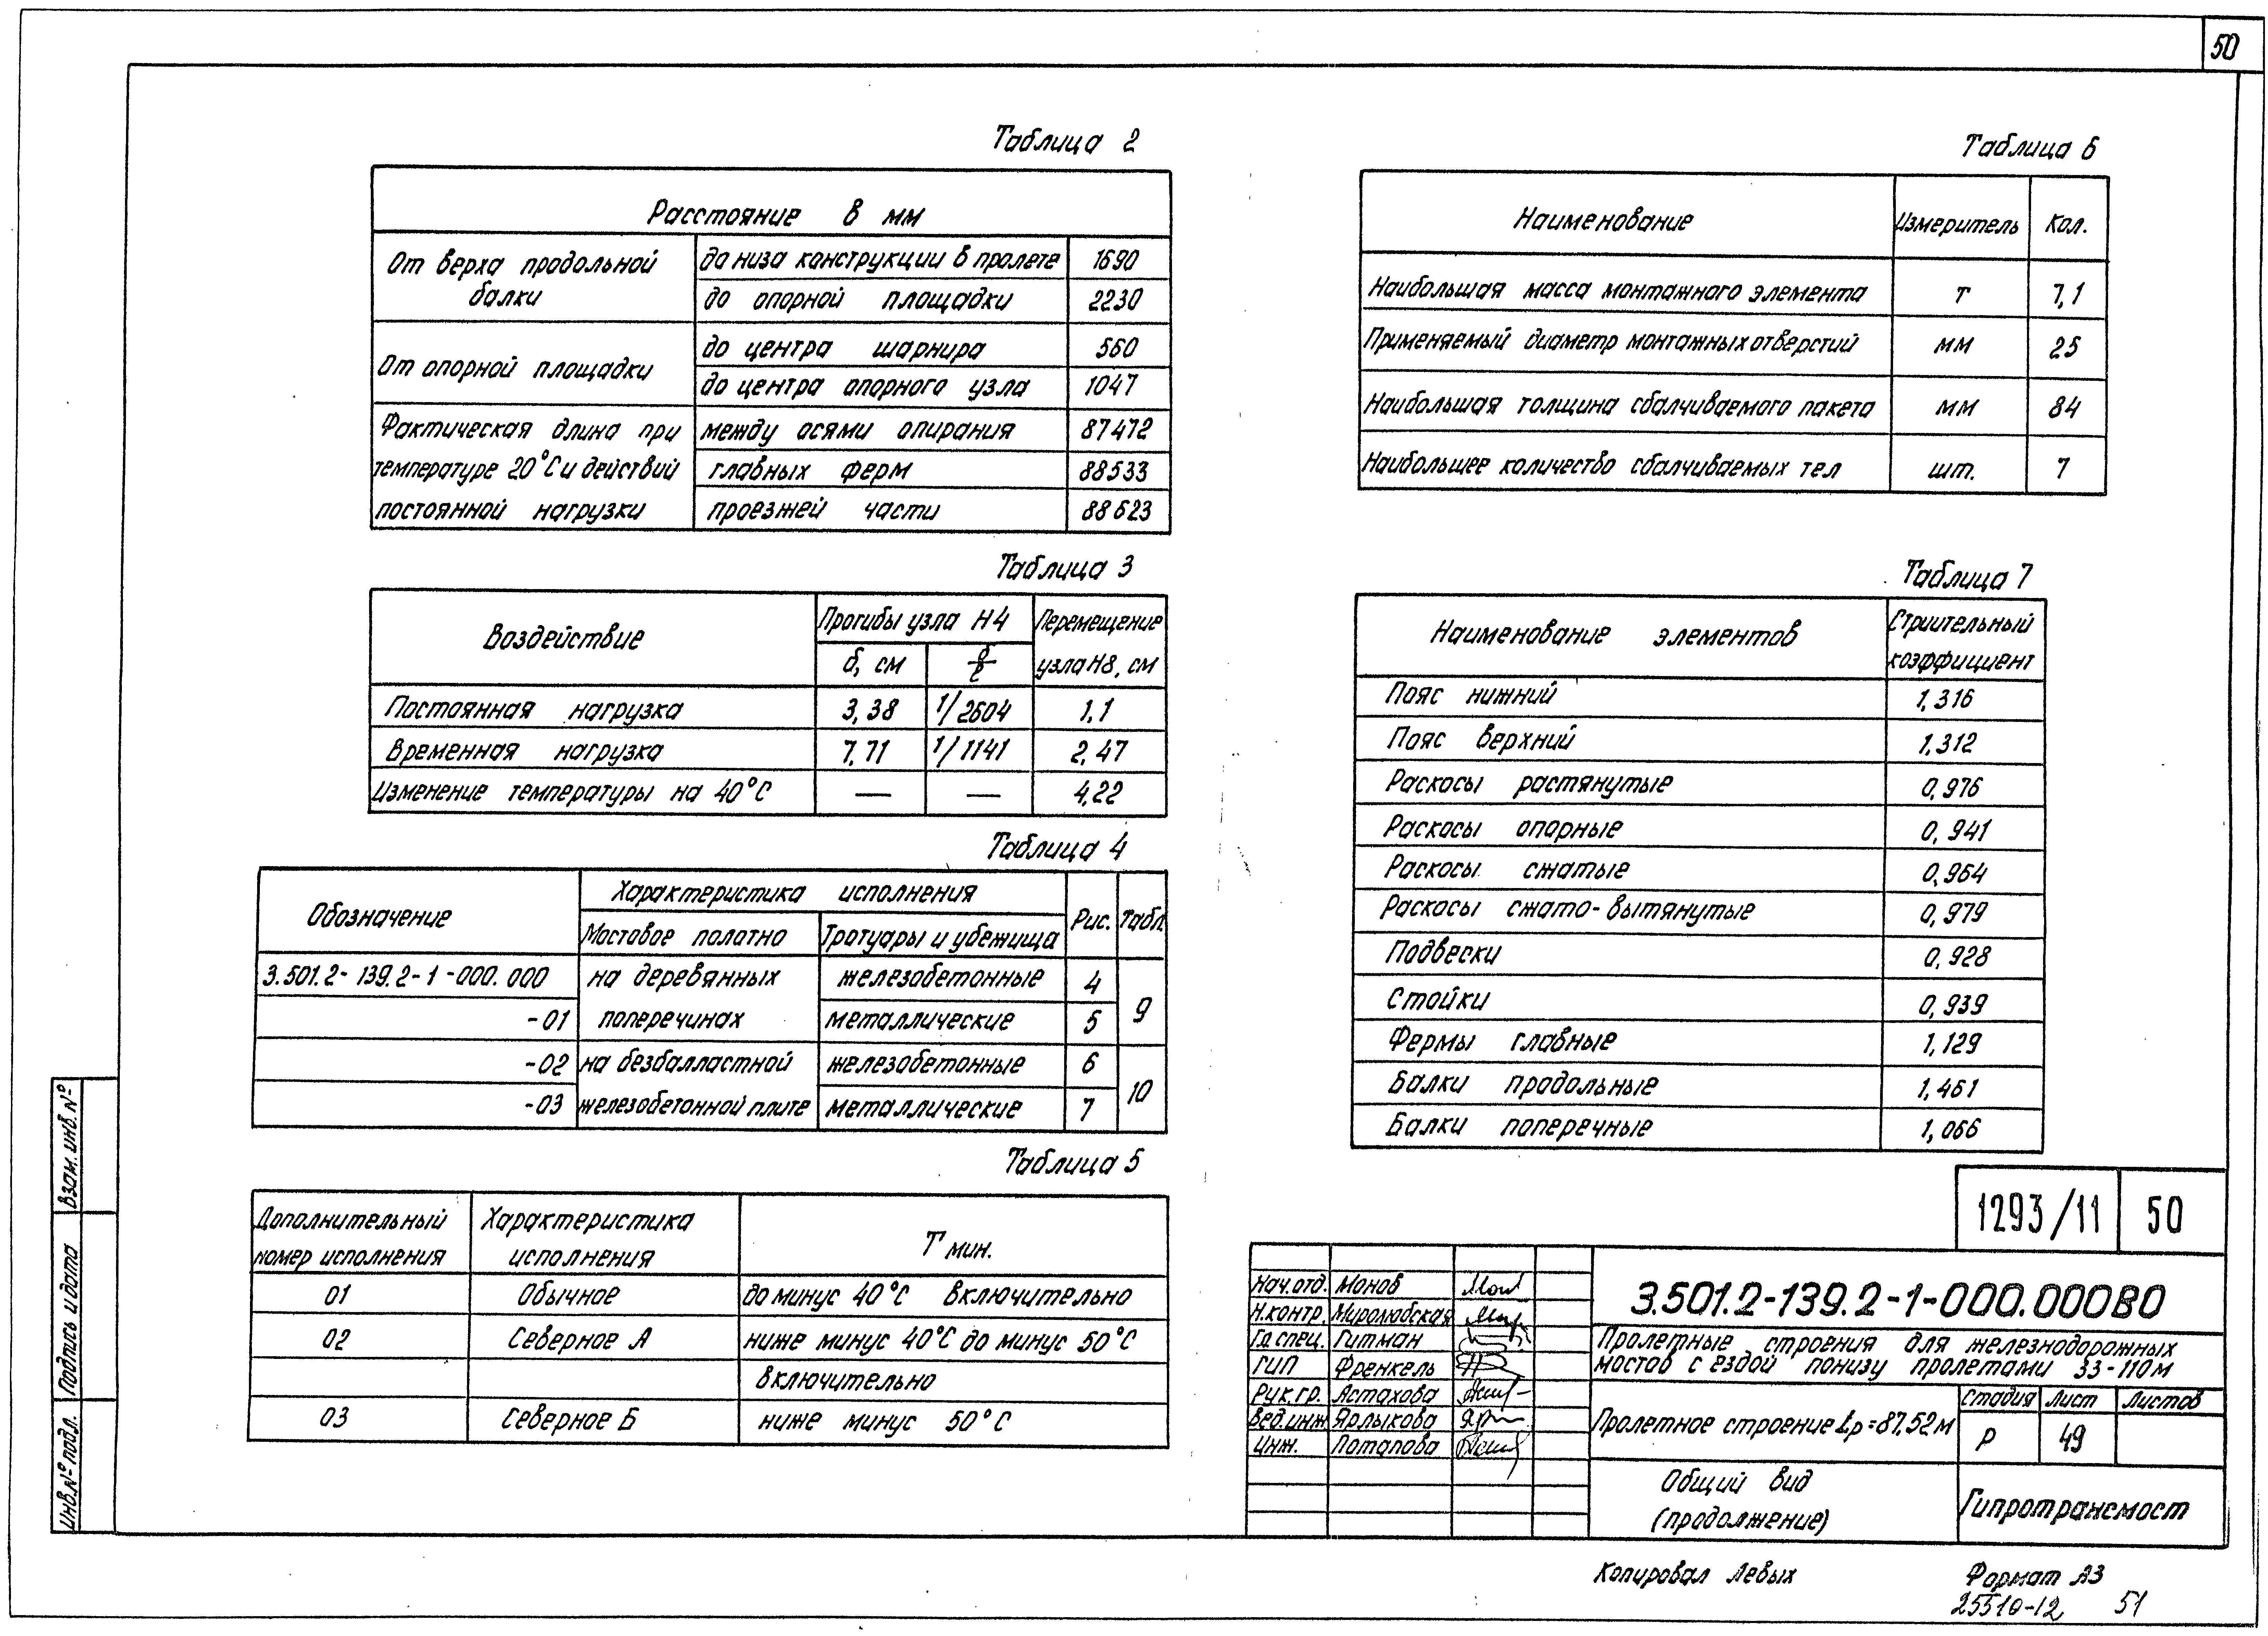 50
Таблица 2
Расстояние в мм
От верха продольной балки
до низа конструкции в пролете 1690
до опорной площадки 2230
От опорной площадки
до центра шарнира 560
до центра опорного узла 1047
Фактическая длина при температуре 20°С и действий постоянной нагрузки
между осями опирания 87472
главных ферм 88533
проезжей части 88623
Таблица 3
Воздействие
Прогибы узла Н4
Перемещение узла Н8, см
δ, см
δ/ℓ
Постоянная нагрузка 3,38 1/2604 1,1
Временная нагрузка 7,71 1/1141 2,47
Изменение температуры на 40°С — — 4,22
Таблица 4
Обозначение
Характеристика исполнения
Рис.
Табл.
Мостовое полотно
Тротуары и убежища
3.501.2-139.2-1-000.000 на деревянных железобетонные 4
-01 поперечинах металлические 5
9
-02 на безбалластной железобетонные 6
-03 железобетонной плите металлические 7
10
Таблица 5
Дополнительный номер исполнения
Характеристика исполнения
Т мин.
01 Обычное до минус 40°С включительно
02 Северное А ниже минус 40°С до минус 50°С
включительно
03 Северное Б ниже минус 50°С
Таблица 6
Наименование Измеритель Кол.
Наибольшая масса монтажного элемента т 7,1
Применяемый диаметр монтажных отверстий мм 25
Наибольшая толщина сбалчиваемого пакета мм 84
Наибольшее количество сбалчиваемых тел шт. 7
Таблица 7
Наименование элементов
Строительный коэффициент
Пояс нижний 1,316
Пояс верхний 1,312
Раскосы растянутые 0,976
Раскосы опорные 0,941
Раскосы сжатые 0,964
Раскосы сжато-вытянутые 0,979
Подвески 0,928
Стойки 0,939
Фермы главные 1,129
Балки продольные 1,461
Балки поперечные 1,066
1293/11 50
Нач.отд. Монов
Н.контр. Миролюбская
Гл.спец. Гитман
ГИП Френкель
Рук.гр. Астахова
Вед.инж Ярлыкова
Инж. Потапова
3.501.2-139.2-1-000.000ВО
Пролетные строения для железнодорожных
мостов с ездой понизу пролетами 33-110м
Пролетное строение Lр=87,52м
Стадия Лист Листов
Р 49
Общий вид
(продолжение)
Гипротрансмост
Взам. инв. №
Подпись и дата
Инв.№ подл.
Копировал Левых
Формат А3
25510-12 51